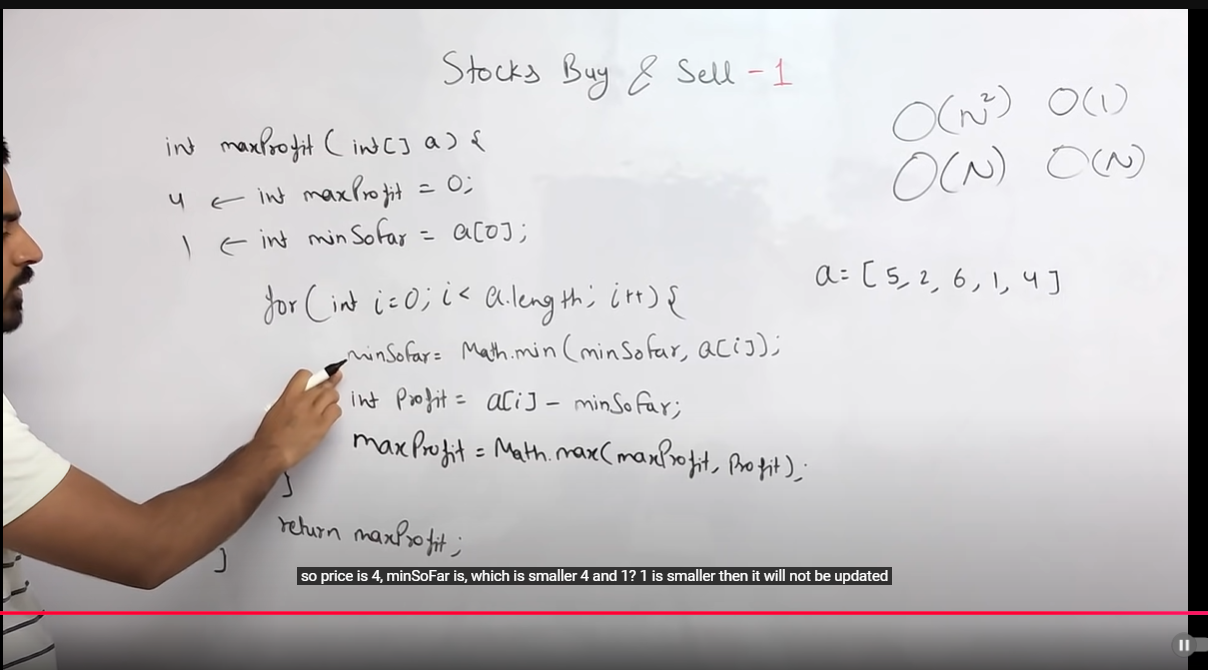 Stocks Buy & Sell - 1
O(N²) O(1)
O(N) O(N)
int maxProfit ( int[] a) {
4 ← int maxProfit = 0;
1 ← int minSofar = a[0];
a = [ 5, 2, 6, 1, 4 ]
for ( int i=0; i< a.length; i++) {
minSofar= Math.min (minSofar, a[i]);
int Profit = a[i] - minSofar;
maxProfit = Math.max(maxProfit, Profit);
}
return maxProfit;
}
so price is 4, minSoFar is, which is smaller 4 and 1? 1 is smaller then it will not be updated